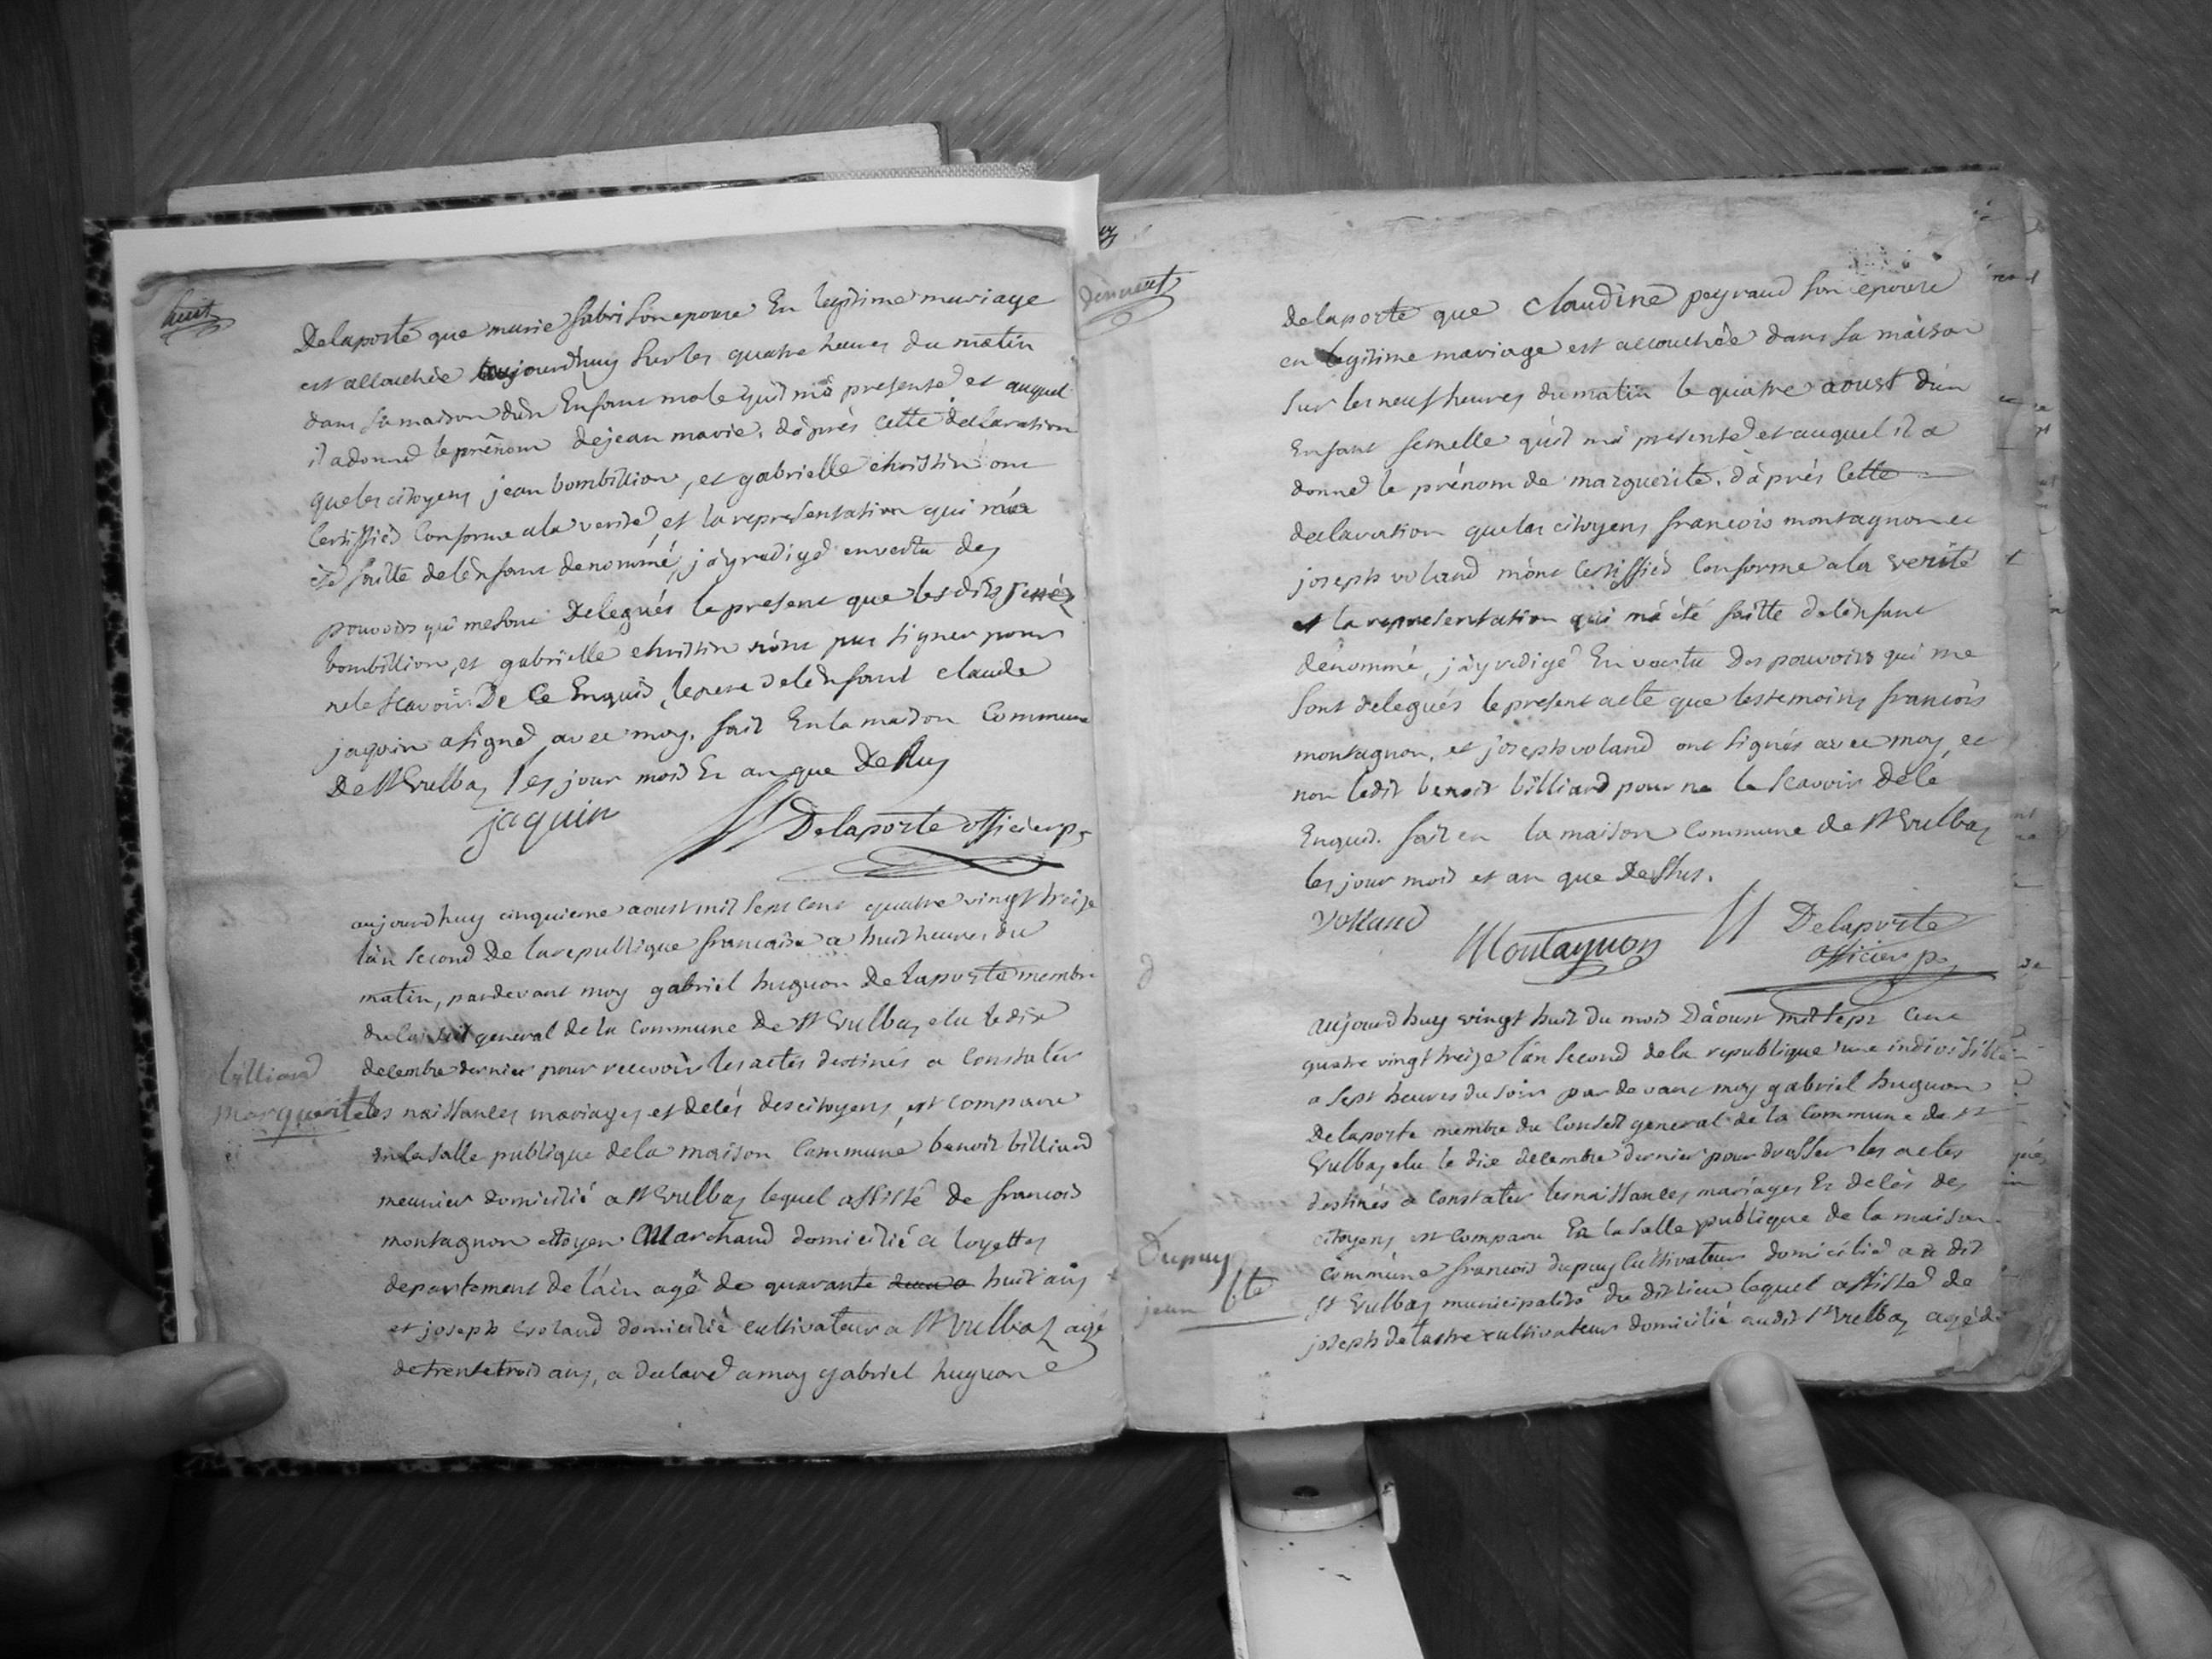 huit
Delaporte que marie fabri son epouse En legitime mariage
est accouchée aujourdhuy sur les quatre heures du matin
dans sa maison d'un Enfant male qu'il m'a presenté et auquel
il a donné le prénom de jean marie. d'après cette declaration
que les citoyens jean bombillion, et gabrielle christin ont
Certiffiés Conforme a la verité, et la representation qui m'a
été faitte de l'enfant denommé, j'ay redigé en vertu des
pouvoirs qui me sont Delegués le present que les dits
bombillion, et gabrielle christin n'ont pas signer pour
ne le scavoir De Ce Enquis, le pere de l'enfant claude
jaquin a signé avec moy. fait En la maison Commune
De St Vulbas les jour mois Et an que Dessus
jaquin Delaporte officier p.
aujourdhuy cinquieme aoust mil sept cent quatre vingt treize
l'an second De la republique francaise a huit heures du
matin, pardevant moy gabriel huguon Delaporte membre
du conseil general de la Commune de St Vulbas elu le dix
decembre dernier pour recevoir les actes destinés a Constater
billiard
marguerite
les naissances mariages et décés des citoyens, est comparu
en la salle publique de la maison Commune benoit billiard
meunier domicilié a St Vulbas lequel assisté de francois
montagnon citoyen Marchand domicilié a loyettes
departement de l'ain agé de quarante huit ans
et joseph voland domicilié cultivateur a St Vulbas agé
de trente trois ans, a declaré a moy gabriel huguon
delaporte que Claudine peyraud son epouse
en legitime mariage est accouchée dans sa maison
sur les neuf heures du matin le quatre aoust d'un
Enfant femelle qu'il m'a presenté et auquel il a
donné le prénom de marguerite. d'après Cette
declaration que les citoyens francois montagnon et
joseph voland m'ont Certiffiés Conforme a la verité
et la representation qui m'a été faitte de l'enfant
dénommé, j'ay redigé En vertu Des pouvoirs qui me
sont delegués le present acte que les temoins francois
montagnon, et joseph voland ont signés avec moy, et
non ledit benoit billiard pour ne le scavoir de ce
Enquis. fait en la maison Commune de St Vulbas
les jour mois et an que Dessus.
Volland Montagnon Delaporte
officier p.
aujourdhuy vingt huit du mois D'aoust mil sept Cent
quatre vingt treize l'an second de la republique une indivisible
a sept heures du soir par devant moy gabriel huguon
Delaporte membre du Conseil general de la Commune de St
Vulbas elu le dix decembre dernier pour dresser les actes
destinés a Constater les naissances mariages Et décés des
citoyens est Comparu En la salle publique de la maison
Dupuy
jean Bte
Commune francois dupuy Cultivateur domicilié au dit
St Vulbas municipalité du dit lieu lequel assisté de
joseph delastre cultivateur domicilié audit St Vulbas agé de